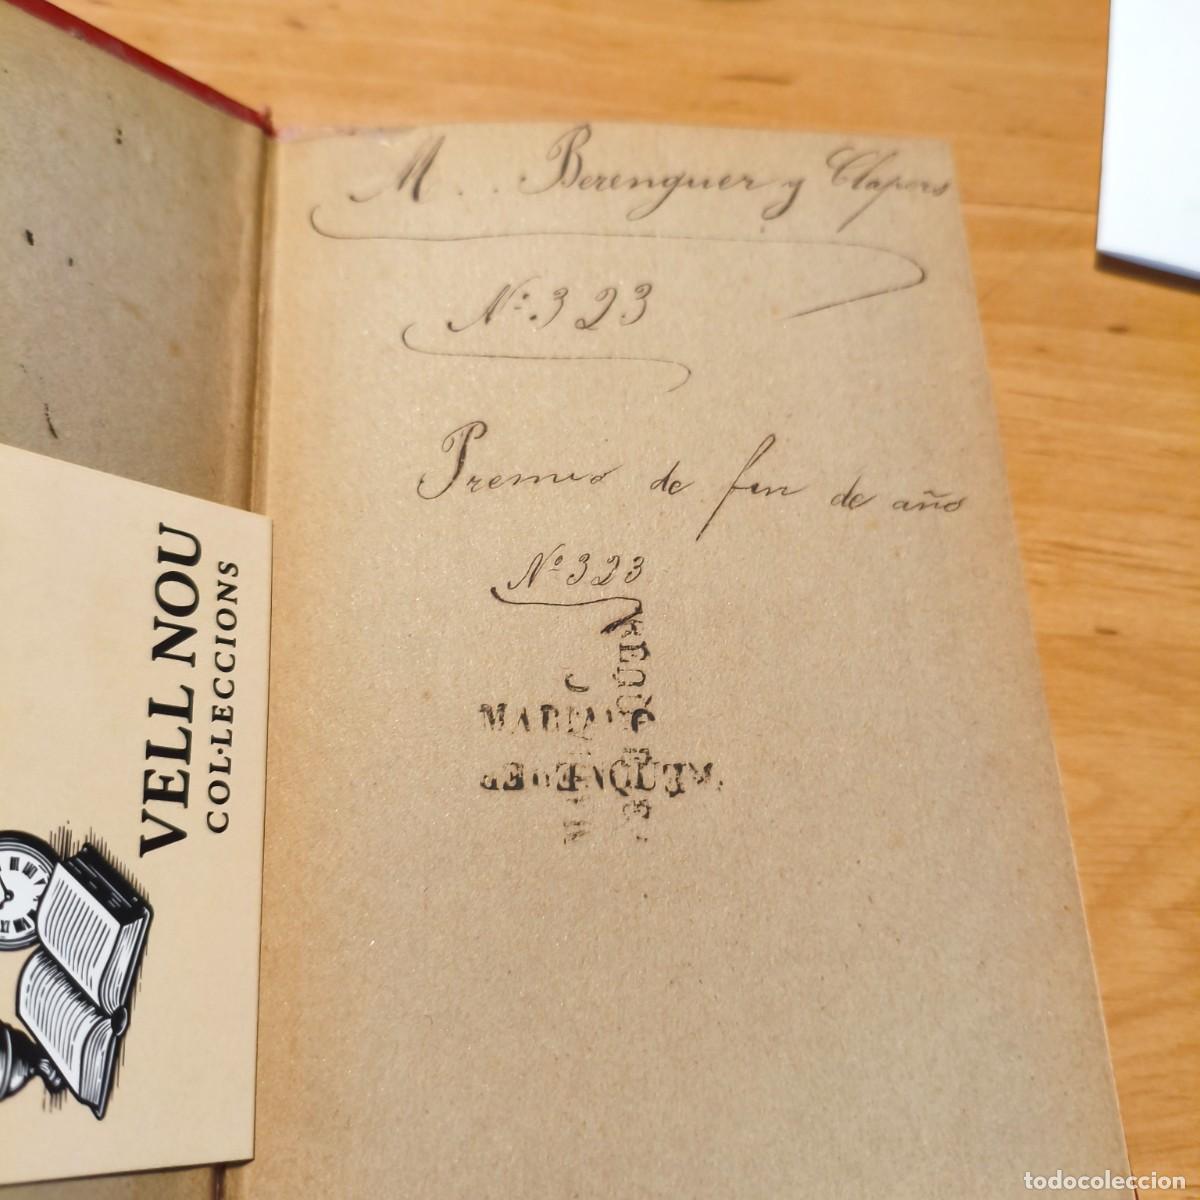 M. . Berenguer y Clapers
Nº. 323
Premio de fin de año
Nº 323
MARIANO
BERENGUER
VELL NOU
COL·LECCIONS
todocoleccion